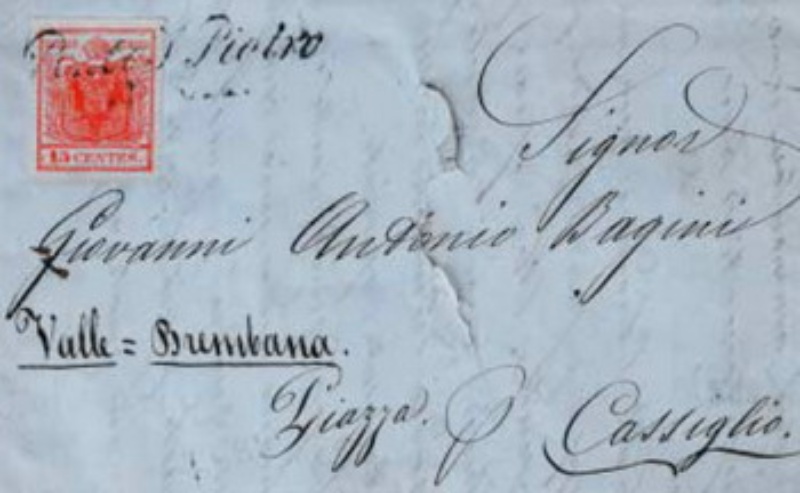 Pietro
15 CENTES.
Signor
Giovanni Antonio Bagini
Valle = Brembana.
Piazza. p Cassiglio.